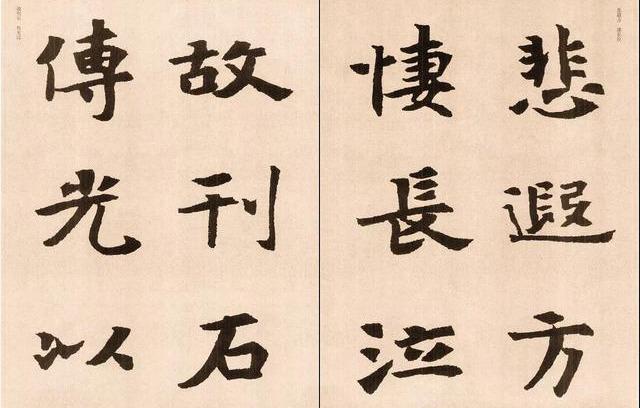 悲遐方
悽長泣
故刊石
傳光以